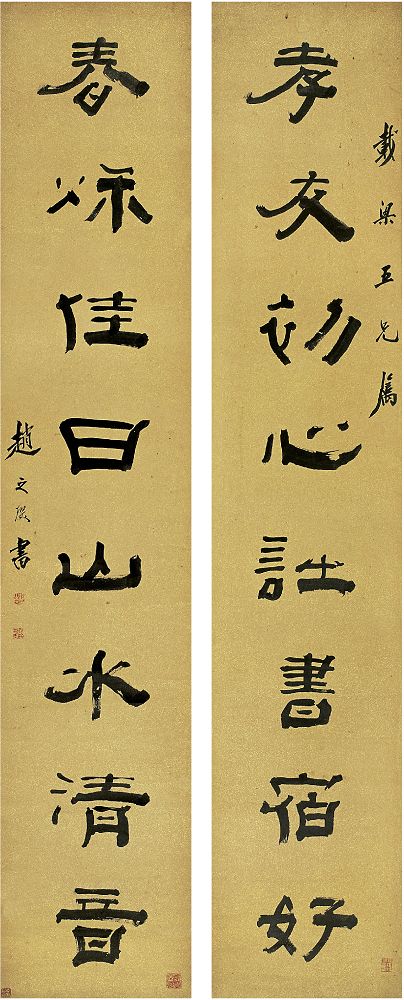 載梁五兄屬
孝友初心詩書宿好
春秌佳日山水清音
趙之琛書